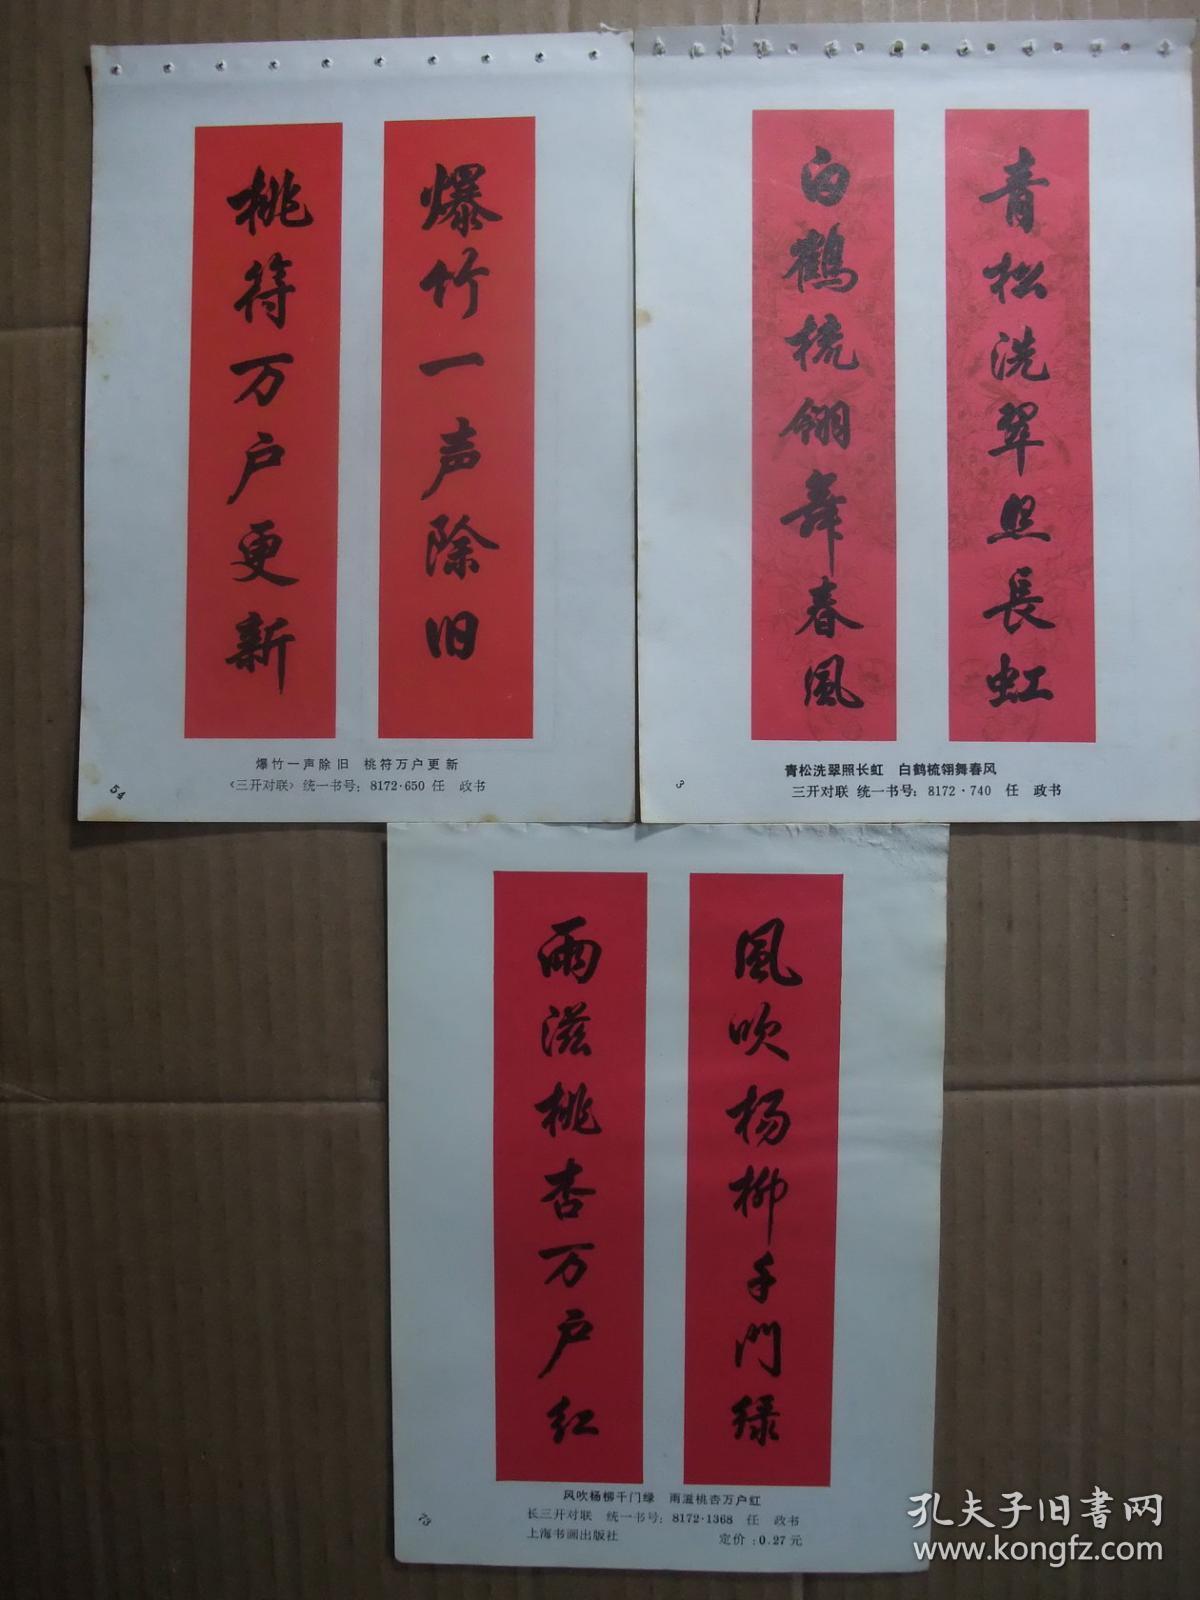 爆竹一声除旧
桃符万户更新
爆竹一声除旧 桃符万户更新
《三开对联》统一书号：8172·650 任 政书
54
青松洗翠照長虹
白鶴梳翎舞春風
青松洗翠照长虹 白鹤梳翎舞春风
三开对联 统一书号：8172·740 任 政书
3
風吹杨柳千門绿
雨滋桃杏万户红
风吹杨柳千门绿 雨滋桃杏万户红
长三开对联 统一书号：8172·1368 任 政书
上海书画出版社 定价：0.27元
73
孔夫子旧书网
www.kongfz.com